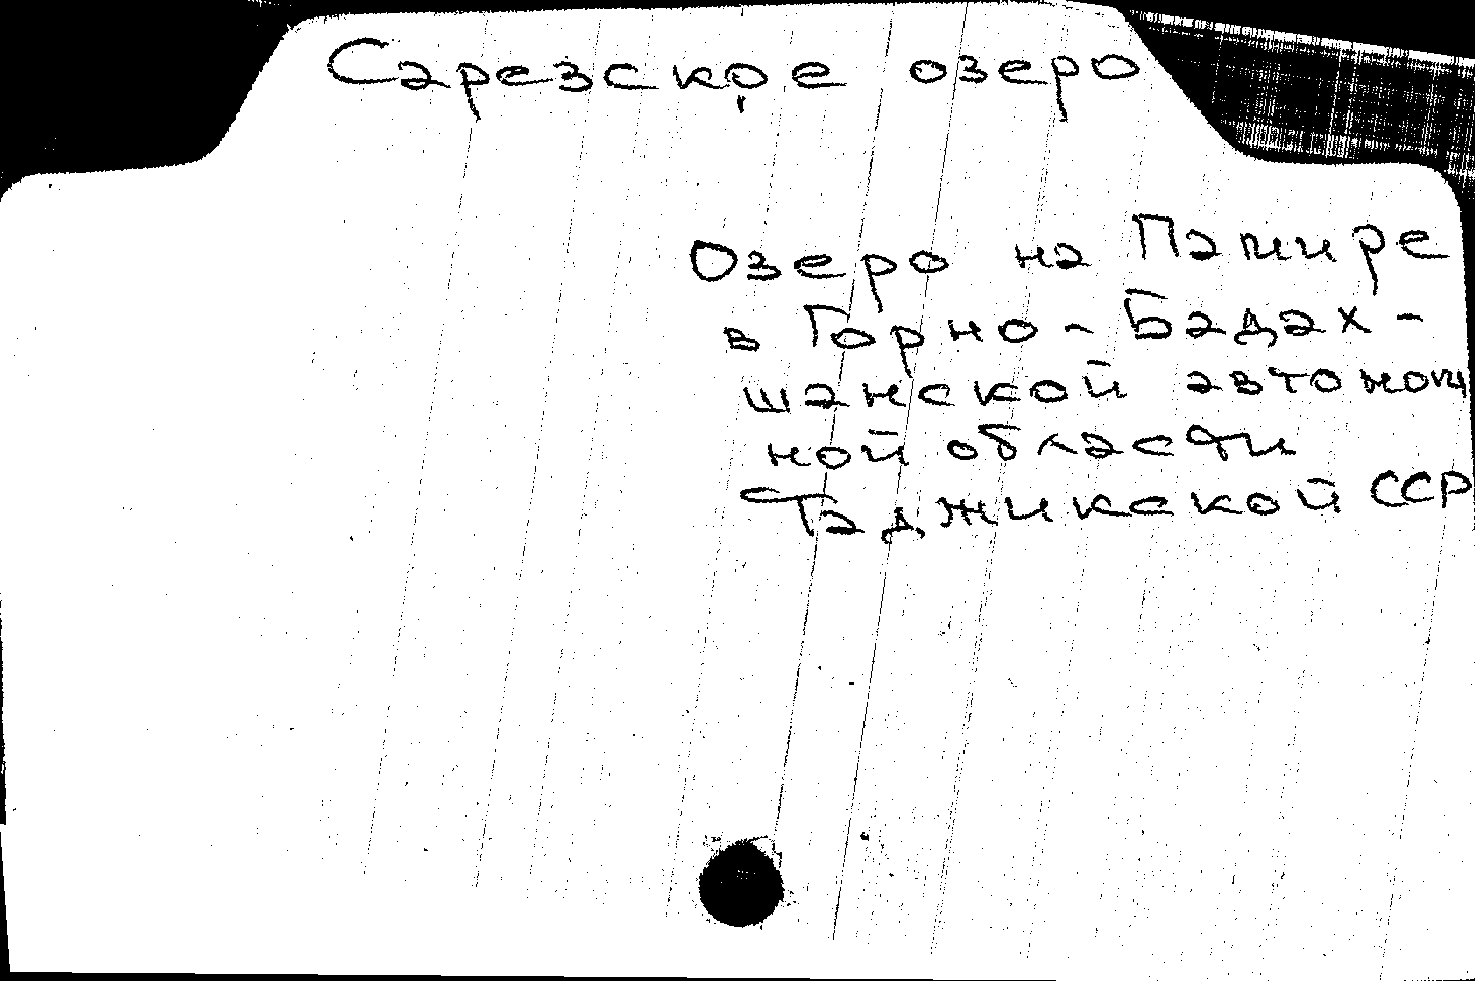 Сарезское озеро
Озеро на Памире
в Горно-Бадах-
шанской автоном
ной области
Таджикской ССР